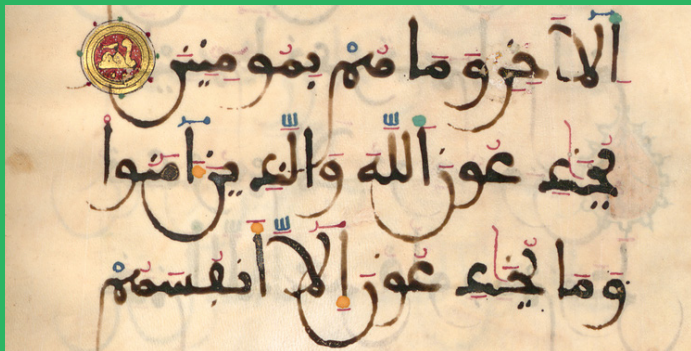 الاخر وما هم بمومنين
يخٰدعون الله والذين ءامنوا
وما يخٰدعون إلا أنفسهم